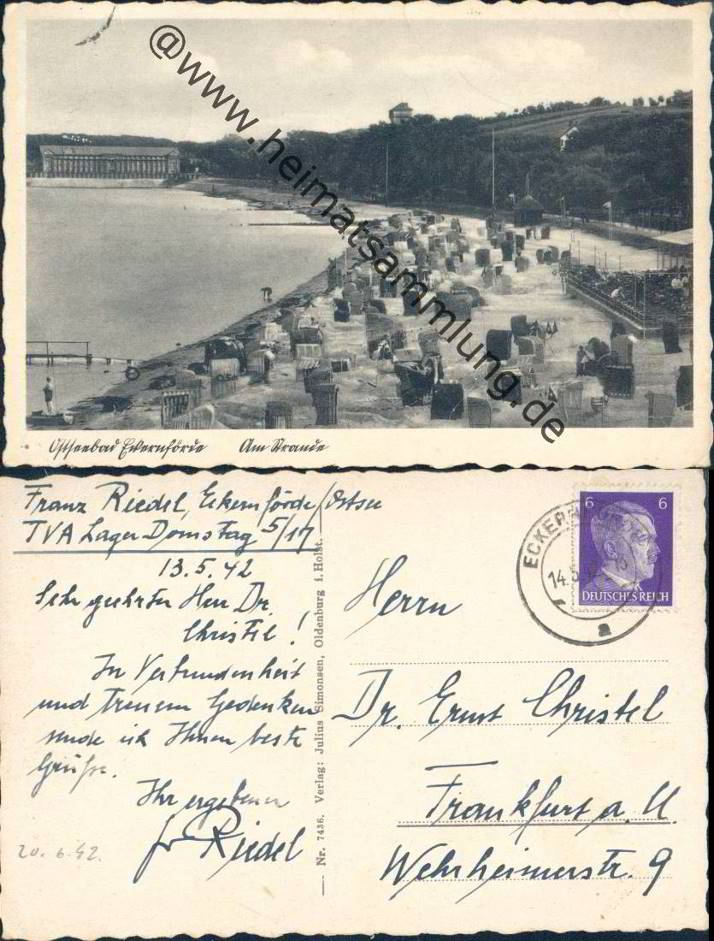 @www.heimatsammlung.de
Ostseebad Eckernförde Am Strande
Franz Riedel, Eckernförde/Ostsee
TVA Lager Domstag 5/17
13.5.42
Sehr geehrter Herr Dr.
Christel!
In Verbundenheit
und treuem Gedenken
sende ich Ihnen beste
Grüße.
Ihr ergebener
Riedel
20.6.42.
Nr. 7436. Verlag: Julius Simonsen, Oldenburg i. Holst.
ECKERN
14.5
a
6 6
DEUTSCHES REICH
Herrn
Dr. Ernst Christel
Frankfurt a. M.
Wehrheimerstr. 9